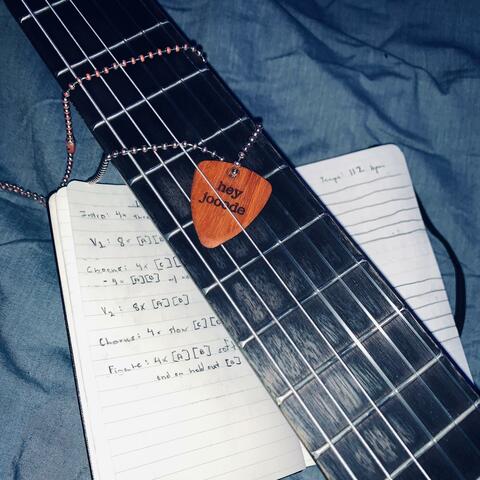 hey
jooode
Tempo: 112 bpm
Intro: 4x
V1: 8x [A][D]
Chorus: 4x [C][
- 4x [A][D]
V2: 8x [A][D]
Chorus: 4x slow [C][
Finale: 4x [A][D]
end on held out [D]